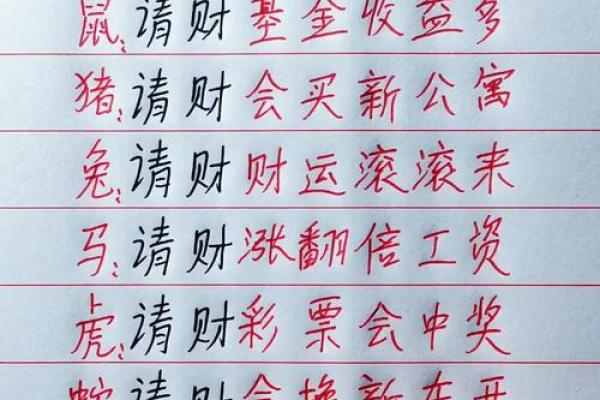 鼠:请财基金收益多
猪:请财会买新公寓
兔:请财财运滚滚来
马:请财涨翻倍工资
虎:请财彩票会中奖
蛇:请财会换新车开